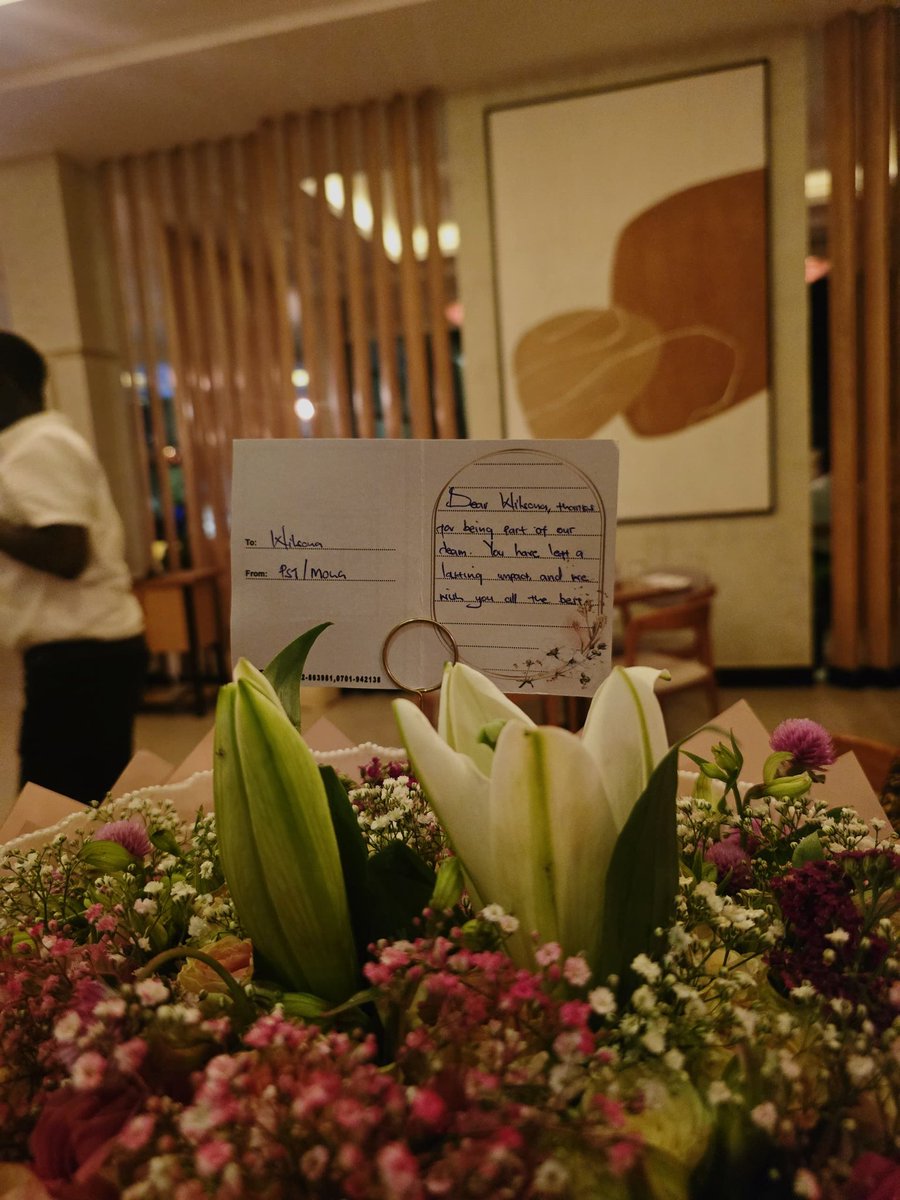 To: Wilsona
From: PST/Mona
Dear Wilsona, thank you
for being part of our
team. You have left a
lasting impact and we
wish you all the best.
2-663981,0701-942138